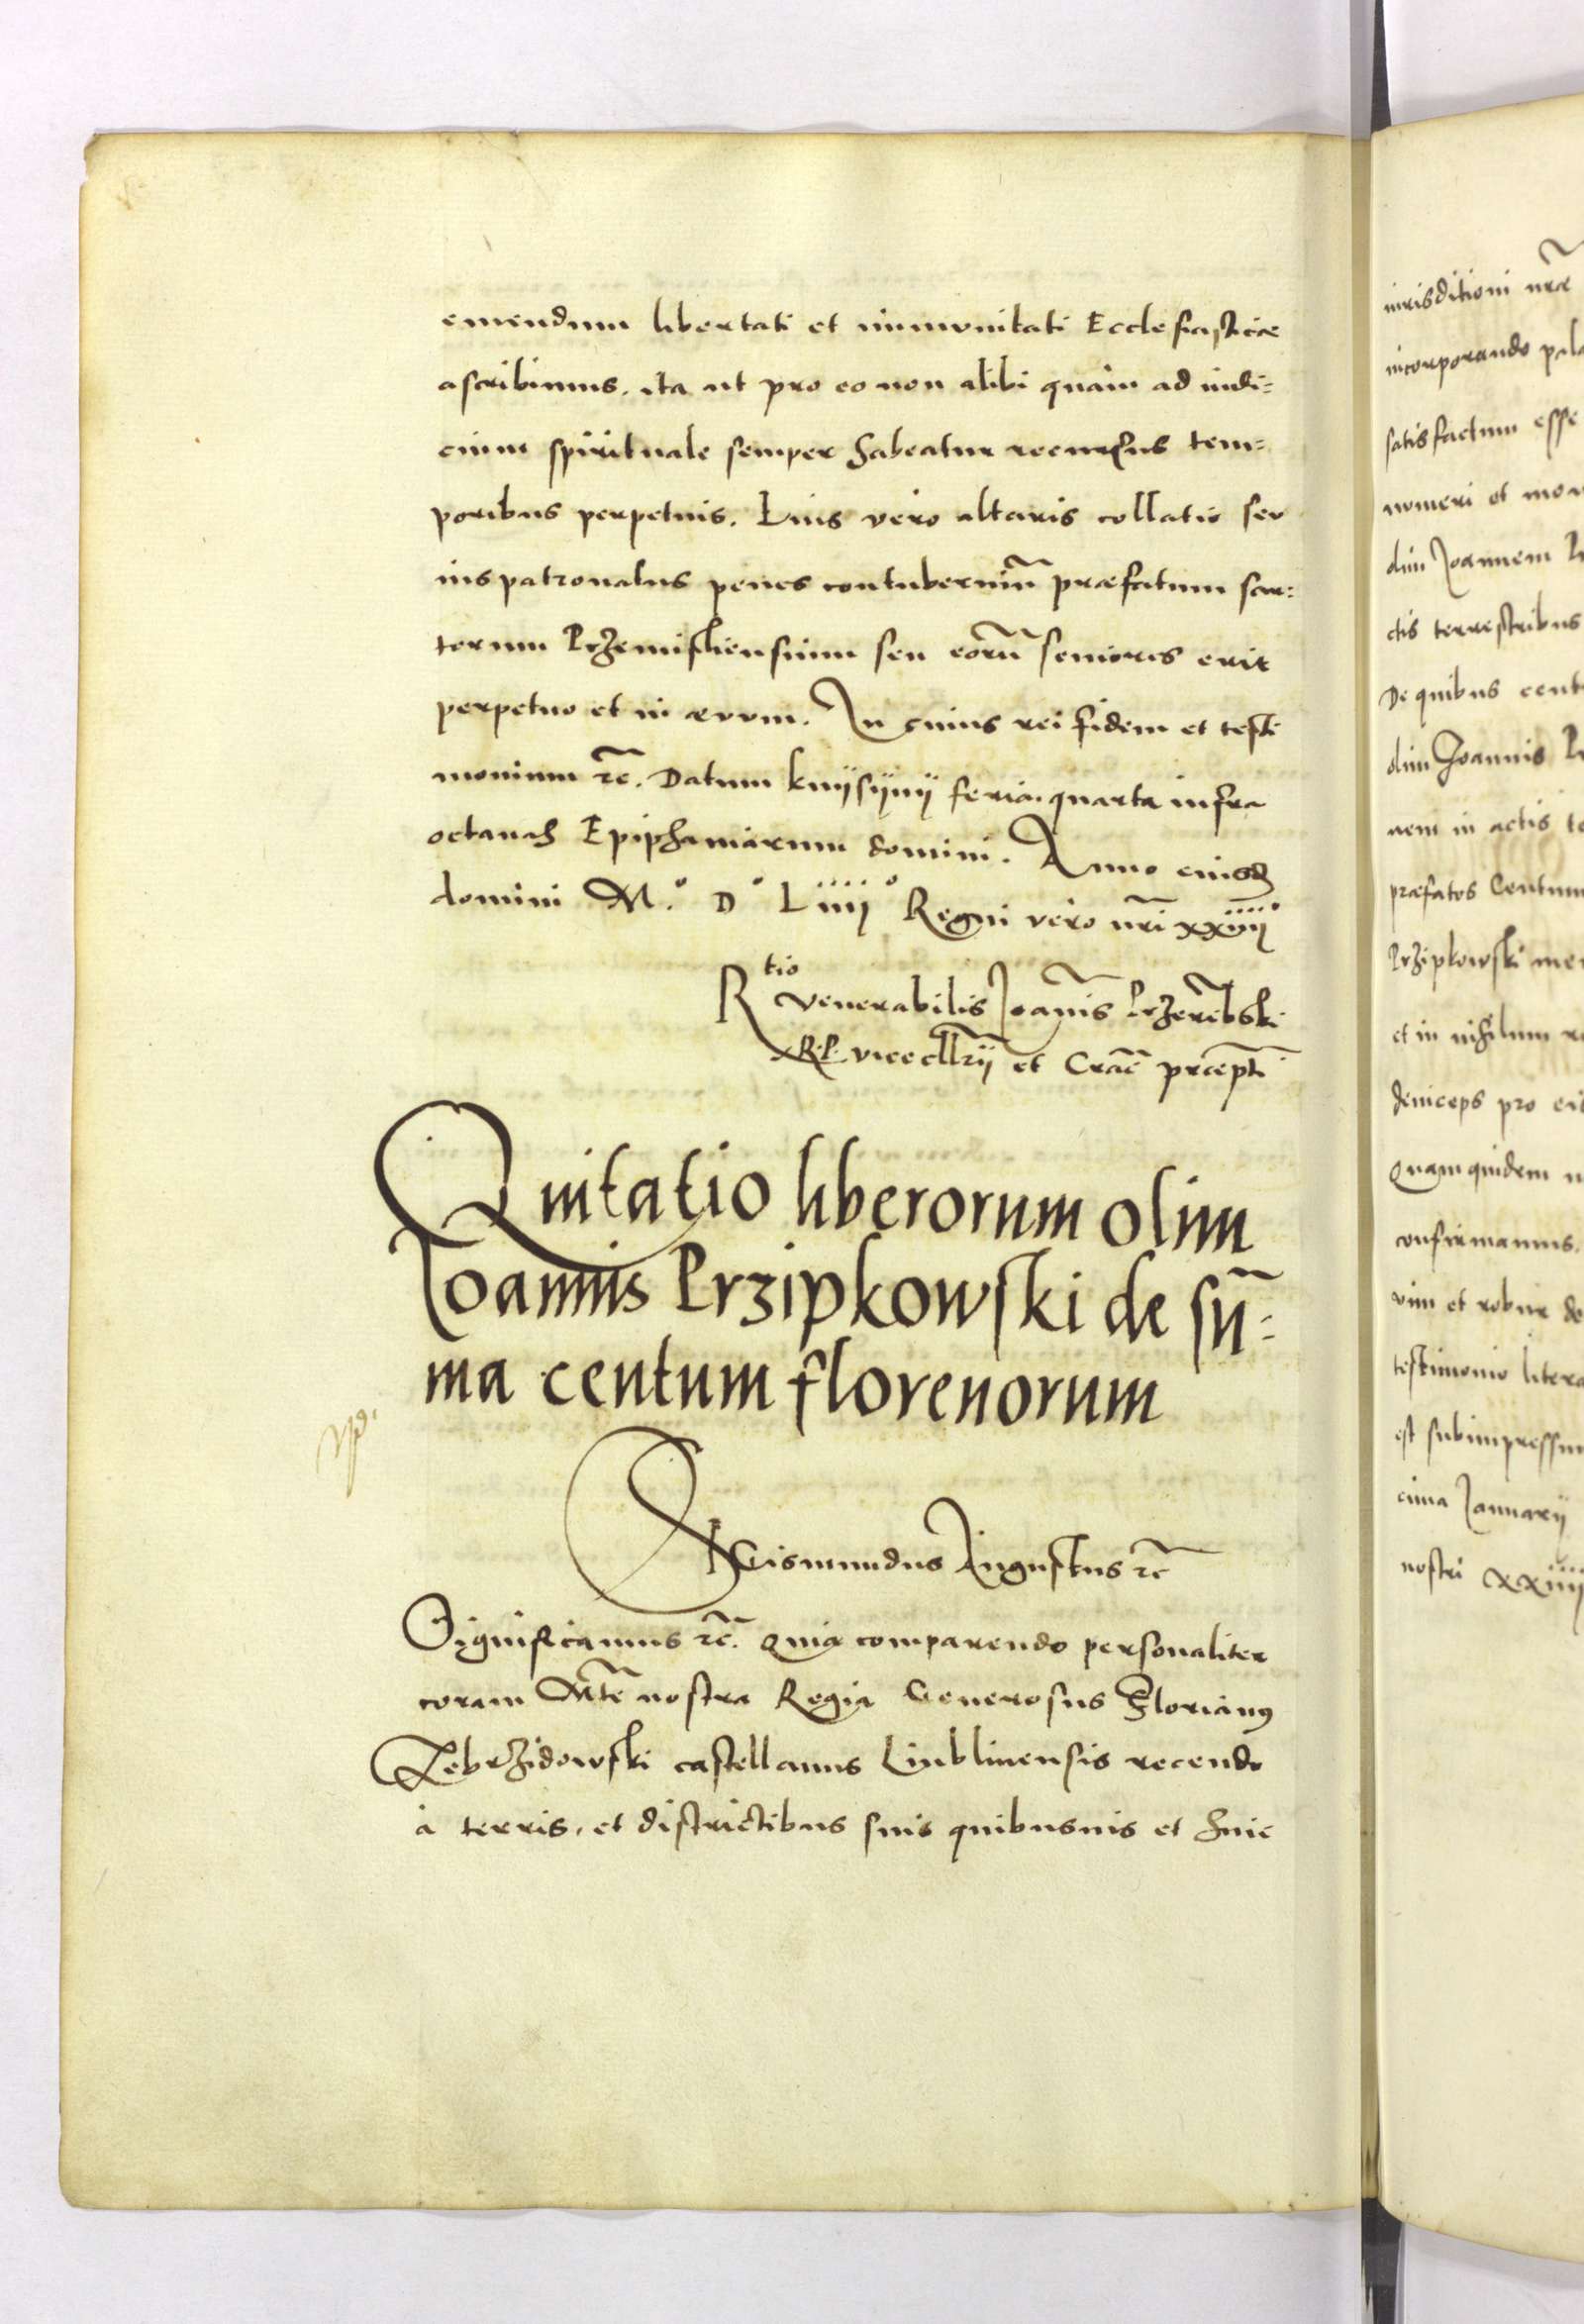 emendum libertati et immunitati Ecclesiasticæ
ascribimus. ita ut pro eo non alibi quam ad iudi=
cium spirituale semper habeatur recursus tem=
poribus perpetuis. Eius vero altaris collatio seu
ius patronatus penes contuberniũ præfatum sar=
torum Przemisliensium seu eorũ senioris erit
perpetuo et in ævum. In cuius rei fidem et testi
monium rc̃. Datum knijsijnij feria quarta infra
octavas Epiphaniarum domini. Anno eiusd
domini M.º Dº Liiiiº Regni vero nr̃i xxiiii
Rtio venerabilis Joañis Przerẽbski
R.P. vicecllr̃ij et Crac̃ præpti
Quitatio liberorum olim
Joannis Przipkowski de sũ=
ma centum florenorum
SIGismundus Augustus rc̃
Significamus rc̃. Quia comparendo personaliter
coram Mt̃e nostra Regia Generosus Florianus
Zebrzidowski castellanus Lublinensis recendo
à terris, et districtibus suis quibusuis et huic
iurisditioni nr̃æ
incorporando
satisfactum esse
numeri et
olim Joannem
ctis terrestribus
De quibus
olim Joannis
nem in actis
præfatos Centum
Przipkowski
et in nihilum
deinceps pro
Quam quidem
confirmamus.
vim et robur
testimonio
est subimpressum
cima Januarij
nostri xxiiii